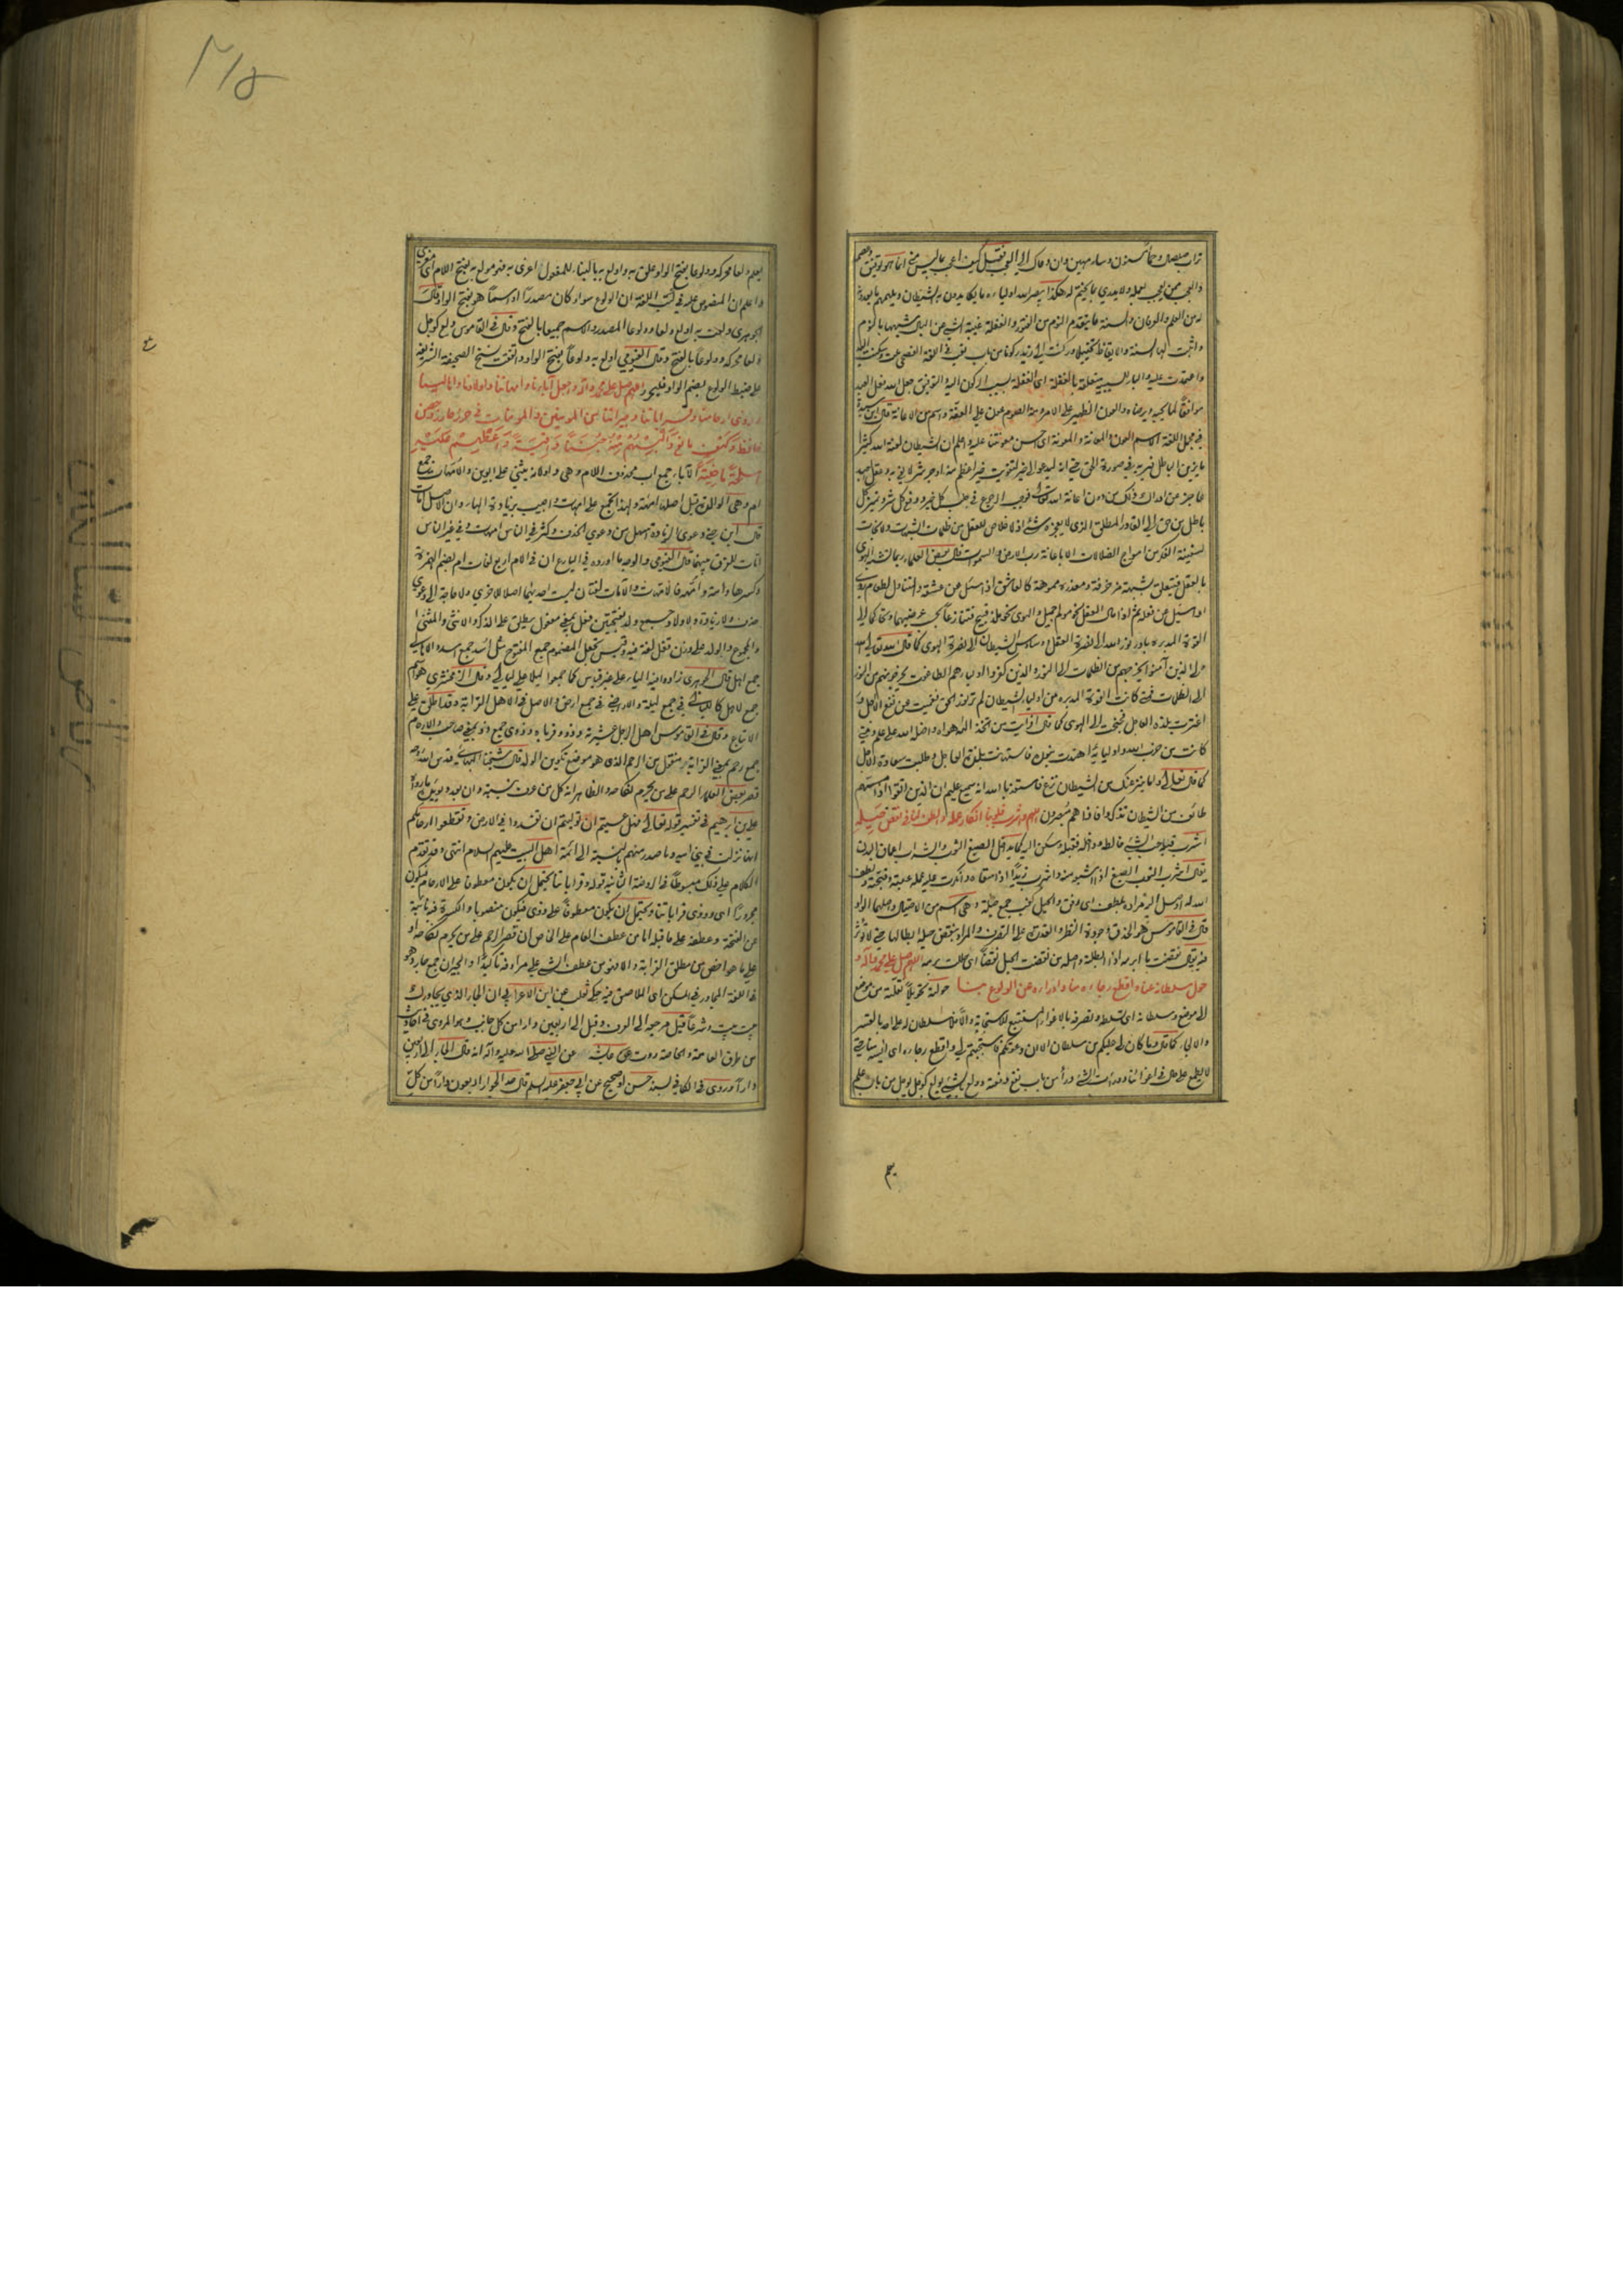 تراب منفصل وحمأ مسنون وسار مهين وان وقال الى العجب فقيل كيف اعجب بما ليس مني انما هو توفيق وعصم
والعجب ممن يعجب بعمله ولا يدري بما يختم له هكذا يبصر الله اولياءه ما يكايدون به الشيطان ويلهمهم ما يعدونه
له من العلم والعرفان والسنة ما يتقدم النوم من الفتور والغفلة غيبة الشي عن البال شبهها بالنوم
واثبت لها السنة والايقاظ تخييلا وركنت الى زيد ركونا من باب تعب في اللغة الفصحى ملت وسكنت اليه
واعتمدت عليه والباء للسببية متعلقة بالغفلة اي الغفلة بسبب الركون اليه التوفيق جعل الله فعل العبد
موافقا لما يحبه ويرضاه والعون الظهير على الامر ومنه الصوم عون على العفة واسم من الاعانة قال ابن
في مجمل اللغة الاسم العون والمعانة والمعونة اي احسن معونتنا عليه واعلم ان الشيطان لعنه الله كثيرا
ما يزين الباطل فيريه في صورة الحق حتى انه ليدعو الى خير لتفويت خير اعظم منه او جر شر لا يفي به وعقل العبد
عاجز عن ادراك ذلك من دون اعانة الله تعالى فوجب الرجوع في جلب كل خير ودفع كل شر وتمييز كل
باطل من حق الى القادر المطلق الذي لا يعجزه شئ اذ لا خلاص للعقل من ظلمات الشبهات ولا نجات
لسفينة الفكر من امواج الضلالات الا باعانة رب الارض والسموات قال بعض العلماء ربما تشبه الهوى
بالعقل فيتعلق بشبهة مزخرفة ومعذرة مموهة كالعاشق اذا سئل عن عشقه والمتناول لطعام ردي
اذا سئل عن فعله ثم اذا مال العقل نحو مولم جميل والهوى نحو ملذ قبيح فتنازعا بحسب غرضيهما وتحاكما الى
القوة المدبرة بادر نور الله الى نصرة العقل ووساوس الشيطان الى نصرة الهوى كما قال الله تعالى الله
ولي الذين آمنوا يخرجهم من الظلمات الى النور والذين كفروا اولياؤهم الطاغوت يخرجونهم من النور
الى الظلمات فمتى كانت القوة المدبرة من اولياء الشيطان لم تر نور الحق فعميت عن نفع الآجل و
اغترت بلذة العاجل فجنحت الى الهوى كما قال افرأيت من اتخذ الهه هواه واضله الله على علم ومتى
كانت من حزب الله واوليائه اهتدت بنوره فاستهانت بلذة العاجل وطلبت سعادة الآجل
كما قال تعالى واما ينزغنك من الشيطان نزغ فاستعذ بالله انه سميع عليم ان الذين اتقوا اذا مسهم
طائف من الشيطان تذكروا فاذا هم مبصرون اللهم واشرب قلوبنا انكار عمله والطف لنا في نقض حيله
اشرب قلبه حب الشئ خالطه وداخله فقبله وسكن اليه كما يداخل الصبغ الثوب والشراب اعماق البدن
يقال اشرب الثوب الصبغ اذا اشبعه منه واشرب زيدا اذا سقاه وانكرت عليه فعله عبته وقبحته ولطف
الله له اوصل اليه مراده بلطف اي رفق والحيل كعنب جمع حيلة وهي اسم من الاحتيال واصلها الواو
قال في القاموس هو الحذق وجودة النظر والقدرة على التصرف والمراد بنقض حيله ابطالها حتى لا تؤثر
فيه يقال نقضت ما ابرمه اذا ابطلته واصله من نقضت الحبل نقضا اي حللت برمه اللهم صل على محمد وآله و
حول سلطانه عنا واقطع رجاءه منا وادرأه عن الولوع بنا حولته تحويلا نقلته من موضع
الى موضع وسلطانه اي تسلطه وتصرفه بالاغواء المستتبع للاستجابة والا فلا سلطان له على احد بالقسر
والالجاء كما قال وما كان لي عليكم من سلطان الا ان دعوتكم فاستجبتم لي واقطع رجاءه اي آيسه منا حتى
لا يطمع على حال في اغوائنا ودرأت الشئ درأ من باب نفع دفعته وولع بالشئ يولع كوجل يوجل من باب علم
يم
٢١٥
يعلم ولعا محركة وولوعا بفتح الواو علق به واولع به بالبناء للمفعول اغري به فهو مولع به بفتح اللام اي مغرى
واعلم ان المنصوص عليه في كتب اللغة ان الولوع سواء كان مصدرا او اسما هو بفتح الواو قال
الجوهري ولعت به اولع ولعا وولوعا المصدر والاسم جميعا بالفتح وقال في القاموس ولع كوجل
ولعا محركة وولوعا بالفتح وقال الفيومي اولع به ولوعا بفتح الواو واتفقت نسخ الصحيفة الشريفة
على ضبط الولوع بضم الواو فليحرر اللهم صل على محمد وآله واجعل آباءنا وامهاتنا واولادنا واهالينا
وذوي ارحامنا وقراباتنا وجيراننا من المؤمنين والمؤمنات منه في حرز حارز وحصن
حافظ وكهف مانع والبسهم منه جننا واقية واعطهم عليه
اسلحة ماضية الآباء جمع اب محذوف اللام وهي واو لانه يثنى على ابوين والامهات جمع
ام وهي الوالدة وقيل اصلها امهة ولهذا تجمع على امهات واجيب بزيادة الهاء وان الاصل امات
قال ابن جني دعوى الزيادة اسهل من دعوى الحذف وكثر في الناس امهات وفي غير الناس
امات للفرق بينهما قال الفيومي والوجه ما اورده في البارع ان في الام اربع لغات ام بضم الهمزة
وكسرها وامة وامهة فالامهات والامات لغتان ليست احديهما اصلا للاخرى ولا حاجة الى دعوى
حذف ولا زيادة والاولاد جمع ولد بفتحتين فعل بمعنى مفعول يطلق على الذكر والانثى والمثنى
والمجموع والولد على وزن قفل لغة فيه وقيس تجعل المضموم جمع المفتوح مثل اسد جمع اسد والاهالي
جمع اهل قال الجوهري زادوا فيه الياء على غير قياس كما جمعوا ليلا على ليالي وقال الزمخشري هو اسم
جمع لاهل كالليالي في جمع ليلة والاراضي في جمع ارض والاصل في الاهل القرابة وقد اطلق على
الاتباع وقال في القاموس اهل الرجل عشيرته وذوو قرباه وذوي جمع ذو بمعنى صاحب والارحام
جمع رحم بمعنى القرابة منقول من الرحم الذي هو موضع تكوين الولد قال شيخنا البهائي قدس الله روحه
قصر بعض العلماء الرحم على من يحرم نكاحه والظاهر انه كل من عرف بنسبته وان بعد ويؤيده ما رواه
علي بن ابراهيم في تفسير قوله تعالى فهل عسيتم ان توليتم ان تفسدوا في الارض وتقطعوا ارحامكم
انها نزلت في بني امية وما صدر منهم بالنسبة الى ائمة اهل البيت عليهم السلام انتهى وقد تقدم
الكلام على ذلك مبسوطا في الروضة الثانية قوله وقراباتنا يحتمل ان يكون معطوفا على الارحام فيكون
مجرورا اي وذوي قراباتنا ويحتمل ان يكون معطوفا على ذوي فيكون منصوبا والكسرة فيه نائبة
عن الفتحة وعطفه على ما قبله اما من عطف العام على الخاص ان قصر الرحم على من يحرم نكاحه او
على ما هو اخص من مطلق القرابة والا فهو من عطف الشي على مرادفه تأكيدا والجيران جمع جار وهو
في اللغة المجاور في السكن اي الملاصق فيه حكى ثعلب عن ابن الاعرابي ان الجار الذي يجاورك
بيت بيت وشرعا قيل مرجعه الى العرف وقيل الى اربعين دارا من كل جانب وهو المروي في احاديث
من طرق العامة والخاصة روت عائشة عن النبي صلى الله عليه وآله انه قال الجار الى اربعين
دارا وروي في الكافي بسند حسن او صحيح عن ابي جعفر عليه السلم قال حد الجوار اربعون دارا من كل
رياض السالكين